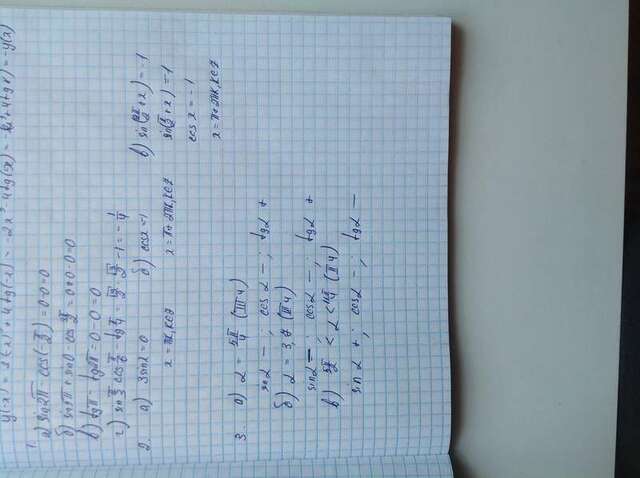 y(-x) = 2(-x)³ + 4tg(-x) = -2x³ - 4tg(x) = -(2x³ + 4tgx) = -y(x)
1.
а) sin2π - cos(-π/2) = 0-0=0
б) sin5π + sin0 - cos 3π/2 = 0+0-0=0
в) tgπ - tg2π = 0-0=0
г) sin π/3 cos π/6 - tg π/4 = √3/2 · √3/2 - 1 = -1/4
2. а) 3sinx=0 б) cosx=-1 в) sin(5π/2+x) = -1
x = πk, k∈Z x = π+2πk, k∈Z sin(π/2+x) = -1
cosx = -1
x = π+2πk, k∈Z
3. а) α = 5π/4 (III ч)
sinα - ; cosα - ; tgα +
б) α = 3,7 (III ч)
sinα - ; cosα - ; tgα +
в) 5π/2 < α < 11π/4 (II ч)
sin α + ; cosα - ; tgα -